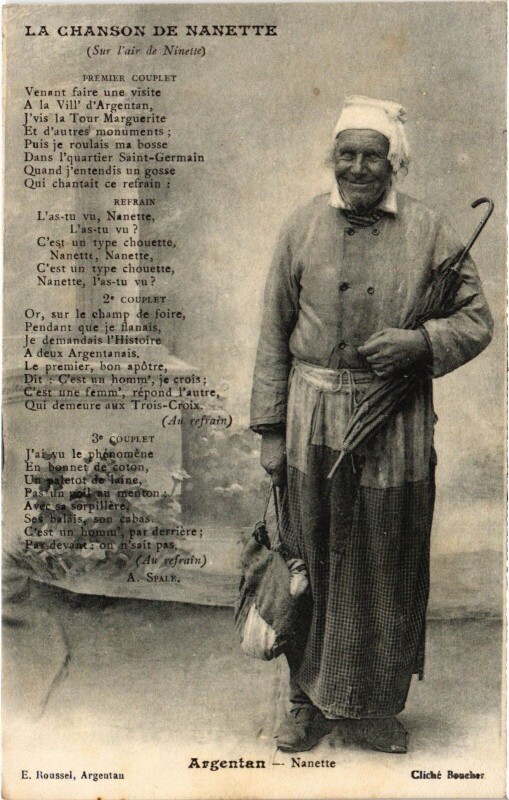 LA CHANSON DE NANETTE
(Sur l'air de Ninette)
PREMIER COUPLET
Venant faire une visite
A la Vill' d'Argentan,
J'vis la Tour Marguerite
Et d'autres monuments ;
Puis je roulais ma bosse
Dans l'quartier Saint-Germain
Quand j'entendis un gosse
Qui chantait ce refrain :
REFRAIN
L'as-tu vu, Nanette,
L'as-tu vu ?
C'est un type chouette,
Nanette, Nanette,
C'est un type chouette,
Nanette, l'as-tu vu ?
2e COUPLET
Or, sur le champ de foire,
Pendant que je flanais,
Je demandais l'Histoire
A deux Argentanais.
Le premier, bon apôtre,
Dit : C'est un homm', je crois ;
C'est une femm', répond l'autre,
Qui demeure aux Trois-Croix.
(Au refrain)
3e COUPLET
J'ai vu le phénomène
En bonnet de coton,
Un paletot de laine,
Pas un poil au menton ;
Avec sa sorpillère,
Ses balais, son cabas.
C'est un homm', par derrière ;
Par devant : on n'sait pas.
(Au refrain)
A. SPALE.
Argentan — Nanette
E. Roussel, Argentan
Cliché Boucher